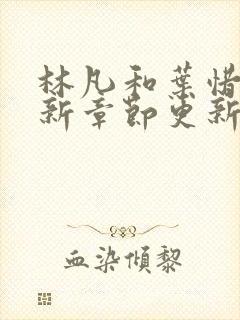 林凡和葉惜
新章節更新
血染傾黎